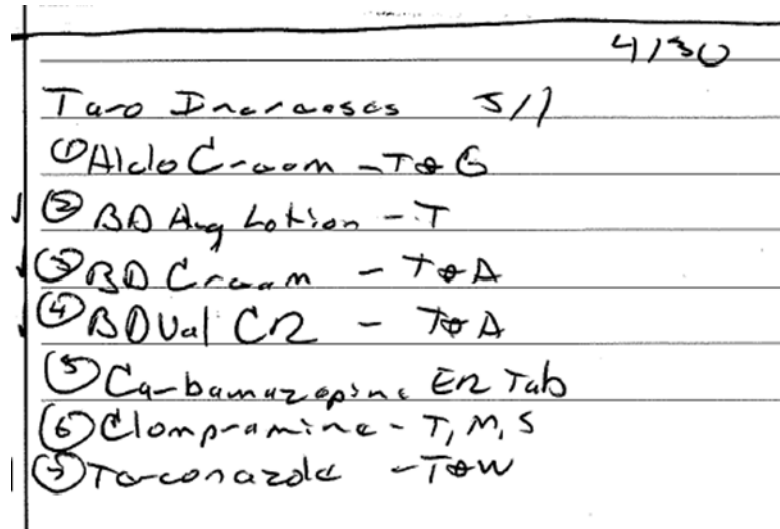 4/30
Taro Increases 5/1
① Aldo Cream - T & G
② BD Aug Lotion - T
③ BD Cream - T & A
④ BD Val CR - T & A
⑤ Carbamazepine ER Tab
⑥ Clompramine - T, M, S
⑦ Terconazole - T & W